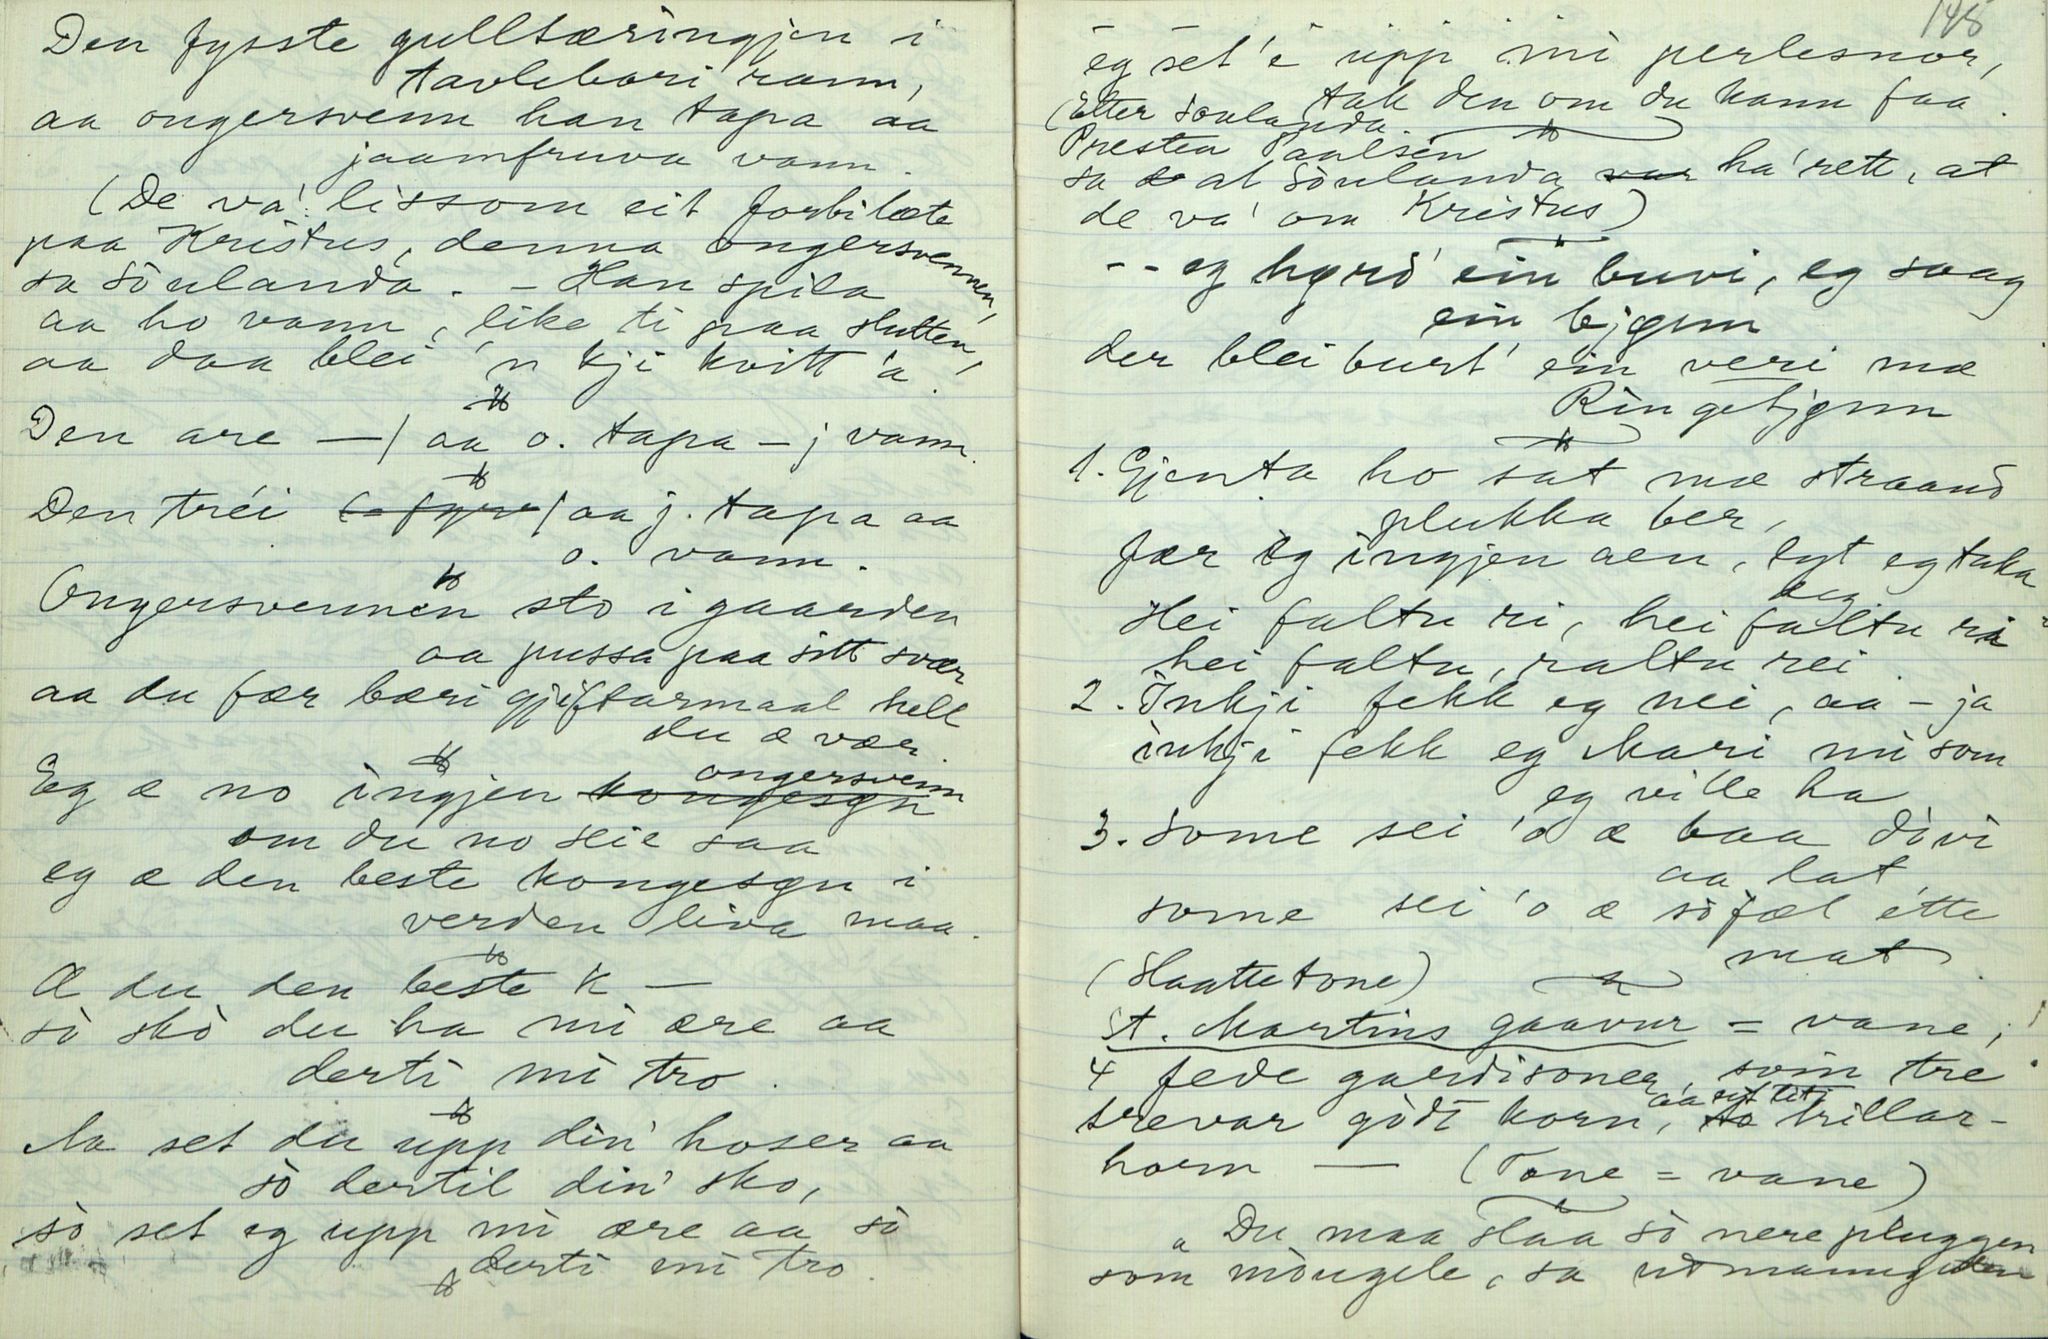 Den fysste gulltæringjen i
tavlebori rann,
aa ongersvenn han tapa aa
jaamfruva vann.
(De va' lissom eit forbilæte
paa Kristus, denna ongersvennen,
sa Sònlanda. - Han spila
aa ho vann, like ti paa slutten,
aa daa blei 'n kji kvitt 'a.
Den are — / aa o. tapa - j vann.
Den tréi / aa j. tapa aa
o. vann.
Ongersvennen sto i gaarden
aa pussa paa sitt svær
aa du fær bæri gjiftarmaal hell
du æ vær.
Eg æ no ingjen kongesøn ongersveinn
om du no seie saa
eg æ den beste kongesøn i
verden liva maa.
Æ du den beste k —
sò skò du ha mi ære aa
derti mi tro.
Aa set du upp din' hoser aa
sò dertil din' sko,
sò set eg upp mi ære aa sò
derti mi tro.
148
eg set 'i upp mi perlesnor,
tak den om du kann faa.
(Etter Sònlanda.
Presten Paalsen
sa at Sònlanda var ha' rett, at
de va' om Kristus)
- - eg høyrd' ein buvi, eg saag
ein bjønn
der blei burt' ein veri mæ
Ringetjønn
1. Gjenta ho sat mæ straand
plukka ber,
fær eg ingjen aen, lyt eg taka
deg
Hei faltu ri, hei faltu ra
hei faltu, raltu rei
2. Inkji fekk eg nei, aa - ja
inkji fekk eg Mari mi som
eg ville ha
3. Some sei 'o æ baa divi
aa lat
some sei 'o æ sò fæl ette
mat
(Slaattetone)
St. Martins gaavur = vane,
4 fede gardisoner, som tre
trevar gòdt korn, to aa sit liti trillar-
horn — (Tone = vane)
Du maa slaa sò nere pluggen
som mòugele, sa utmannguten